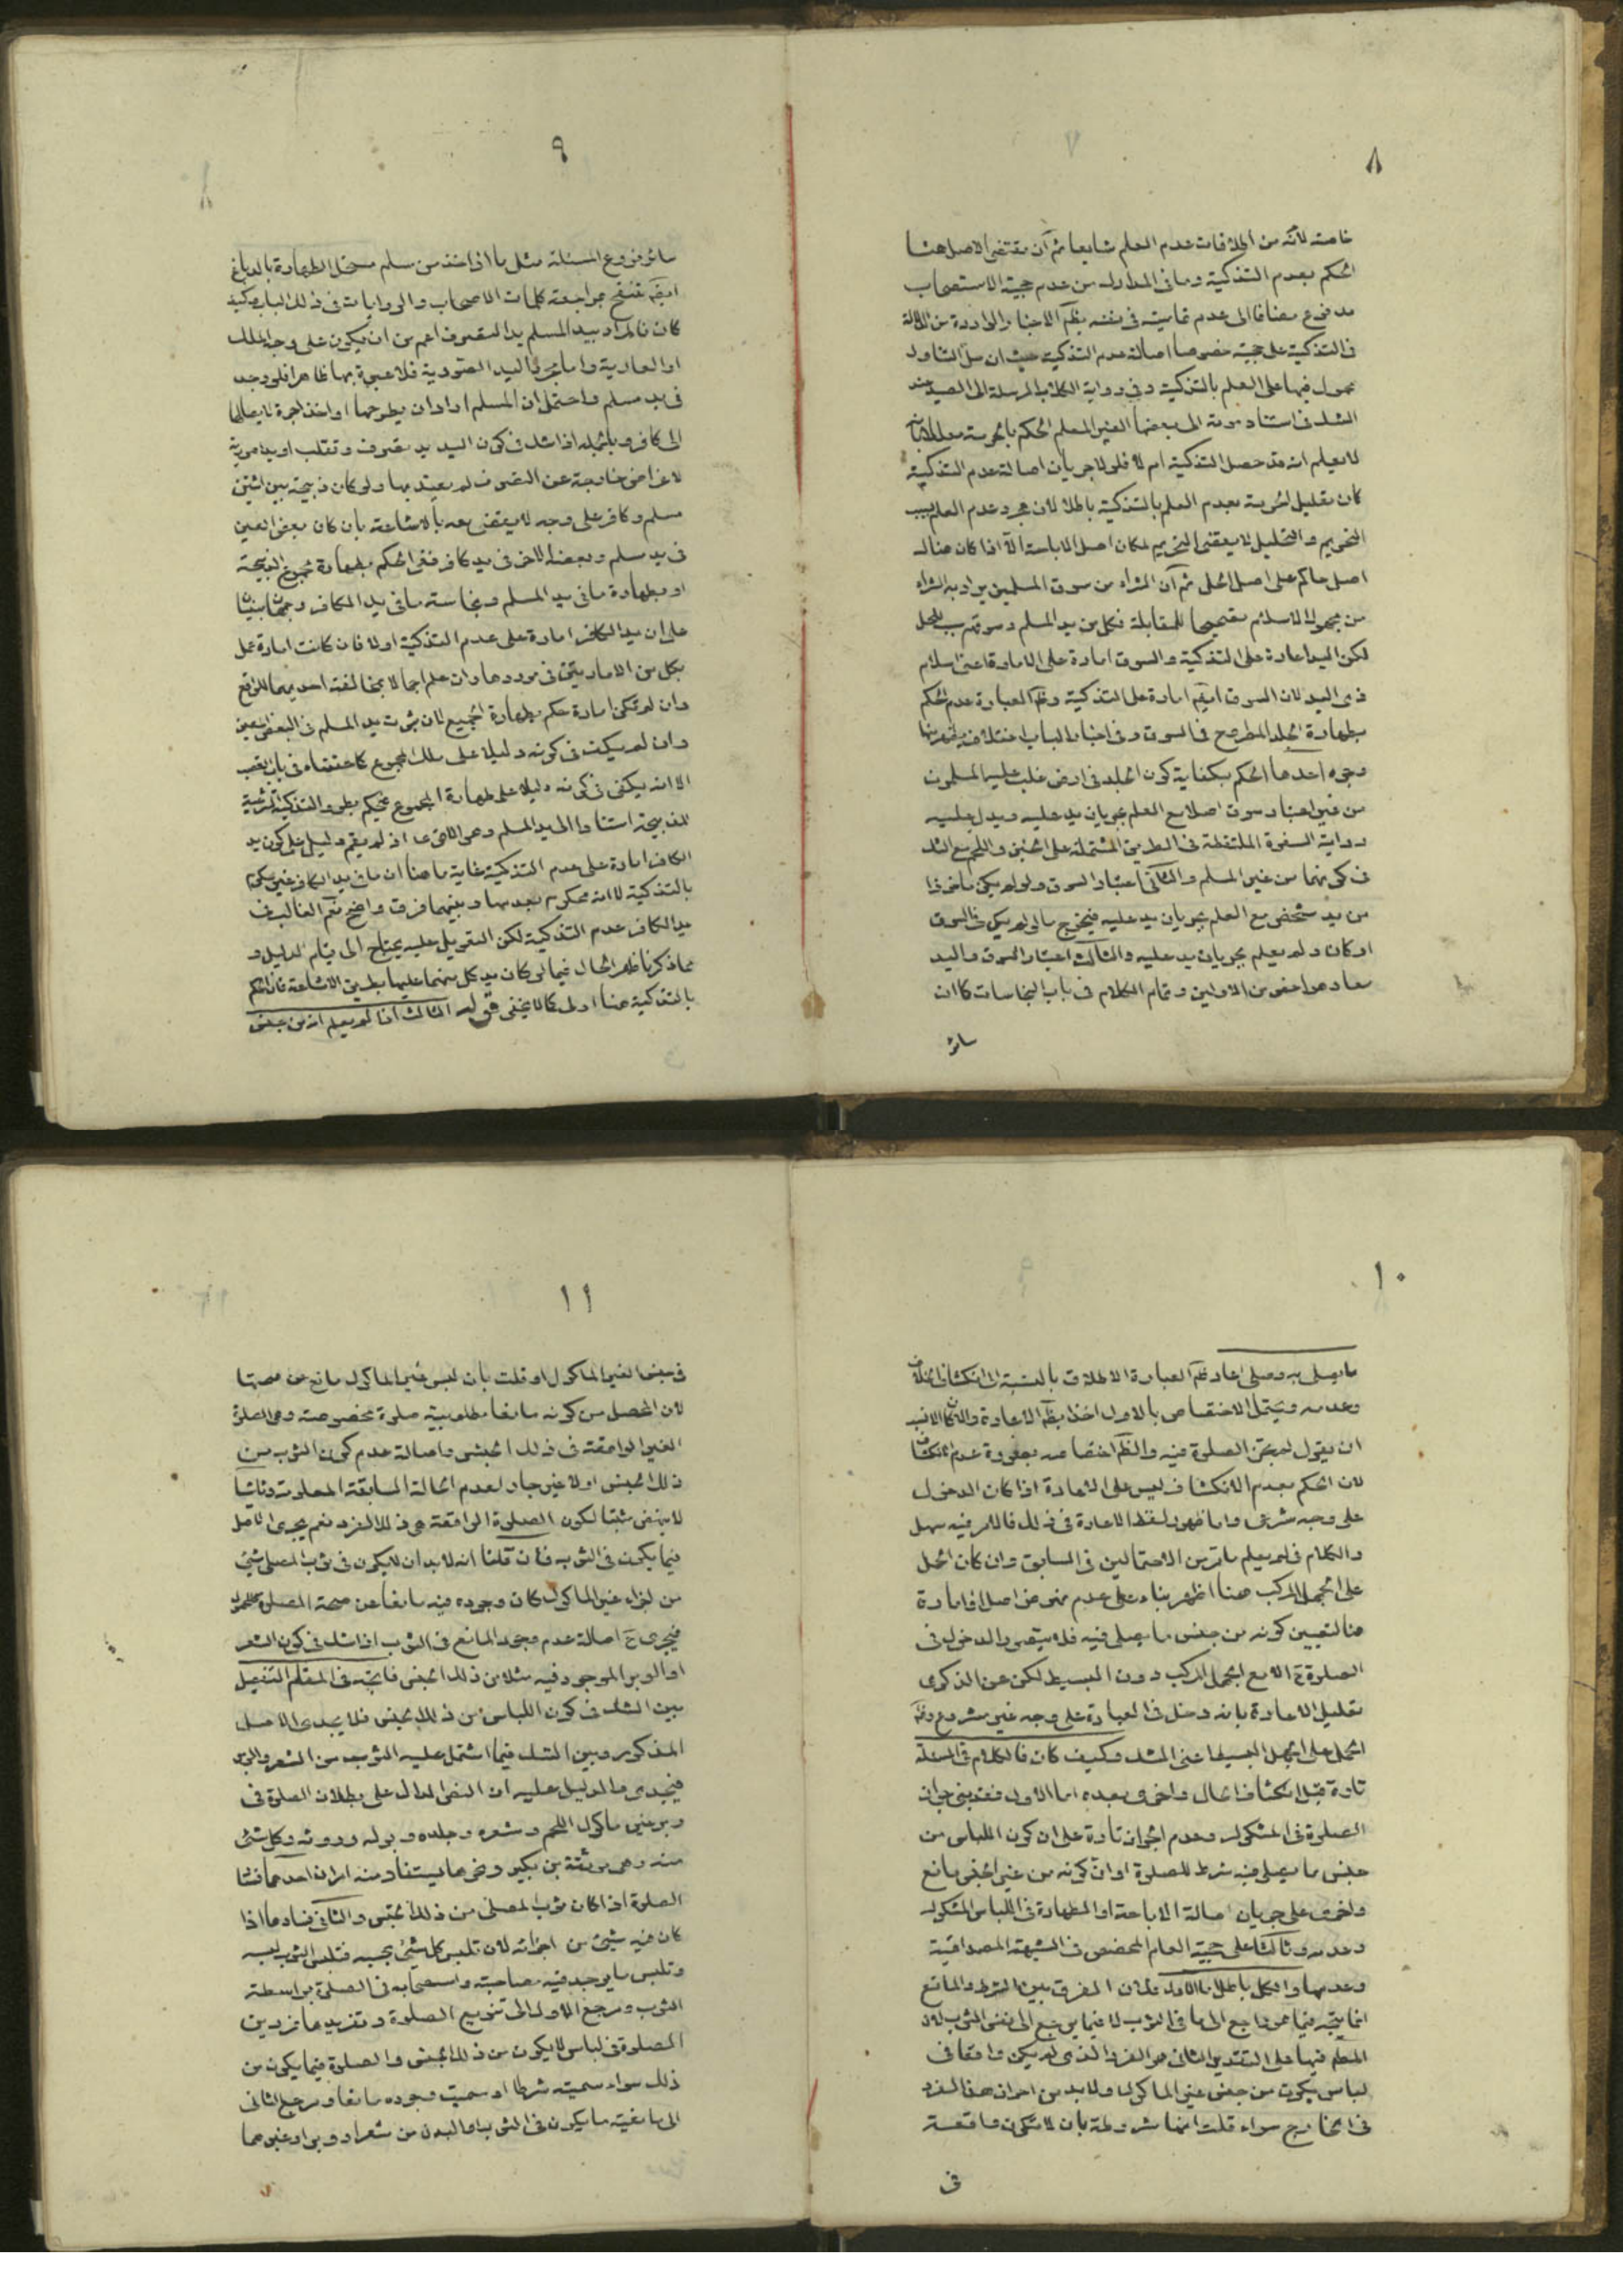 ٨
خاصة لأنه من الملاقات عدم العلم شايعا ثم ان مقتضى الاصل هنا
الحكم بعدم التذكية وما فى المدارك من عدم حجية الاستصحاب
مدفوع مضافا الى عدم تماميته فى نفسه بظم الاخبار الواردة من الدالة
فى التذكية على حجية خصوصا اصالة عدم التذكية حيث ان حل التناول
محمول فيها على العلم بالتذكية وفى رواية الكلاب المرسلة الى الصيد
الشك فى استناد موته الى بعضها الغير المعلم الحكم بالحرمة معللا بانه
لا يعلم انه قد حصل التذكية ام لا فلولا جريان اصالة عدم التذكية
كان تعليل الحرمة بعدم العلم بالتذكية باطلا لان مجرد عدم العلم بسبب
التحريم والتحليل لا يقتضى التحريم لمكان اصل الاباحة الا اذا كان هناك
اصل حاكم على اصل الحل ثم ان الشراء من سوق المسلمين يراد به الشراء
من مجهول الاسلام بقصيها للمقابلة فكل من يد المسلم وسوقهم سبب للحل
لكن اليد امارة على التذكية والسوق امارة على الامارة اعنى اسلام
ذى اليد لان السوق ايضم امارة على التذكية وظم العبارة عدم الحكم
بطهارة الجلد المطروح فى السوق وفى اخبار الباب اختلاف
وجوه احدها الحكم بكفاية كون الجلد فى ارض غلب عليها المسلمون
من غير اعتبار سوق اصلا مع العلم بجريان يد عليه ويدل عليه
رواية السفرة الملتقطة فى الطريق المشتملة على الجبن واللحم مع الشك
فى كونهما من غير المسلم والثانى اعتبار السوق ولو لم يكن ماخوذا
من يد شخص مع العلم بجريان يد عليه فيخرج ما لو لم يكن فى السوق
او كان ولم يعلم بجريان يد عليه والثالث اعتبار السوق واليد
معا وهو اخص من الاولين وتمام الكلام فى باب النجاسات كما ان
سائر
٩
سائر فروع المسئلة مثل ما اذا اخذ من مسلم مستحل الطهارة بالدباغ
ايضم تنقح بمراجعة كلمات الاصحاب والروايات فى ذلك الباب وكيف
كان فالمراد بيد المسلم يد التصرف اعم من ان يكون على وجه الملك
او العارية واما مجرد اليد الصورية فلا عبرة بها ظاهرا فلو وجد
فى يد مسلم واحتمل ان المسلم اراد ان يطرحها او اخذ اجرة لايصالها
الى كافر وبالجملة اذا شك فى كون اليد يد تصرف وتقلب او يد صورية
لاغراض خارجة عن التصرف لم يعتد بها ولو كان ذبيحة بين اثنين
مسلم وكافر على وجه لا يقتضى بعد بالاشاعة بان كان بعض العين
فى يد مسلم وبعضه الاخر فى يد كافر ففى الحكم بطهارة مجموع الذبيحة
او بطهارة ما فى يد المسلم ونجاسة ما فى يد الكافر وجهان مبنيان
على ان يد الكافر امارة على عدم التذكية او لا فان كانت امارة عمل
بكل من الامارتين فى موردها وان علم اجمالا بمخالفة احديهما للواقع
وان لم تكن امارة حكم بطهارة الجميع لان ثبوت يد المسلم فى البعض
وان لم يكف فى كونه دليلا على ملك المجموع كما حققناه فى باب الغصب
الا انه يكفى فى كونه دليلا على طهارة المجموع فيحكم بطرو التذكية الشرعية
للذبيحة استنادا الى يد المسلم وهو الاقوى اذ لم يقم دليل على كون يد
الكافر امارة على عدم التذكية غاية ما هنا ان ما فى يد الكافر غير محكوم
بالتذكية لا انه محكوم بعدمها وبينهما فرق واضح نعم الغالب فى
يد الكافر عدم التذكية لكن التعويل عليه يحتاج الى قيام الدليل و
مما ذكرنا ظهر الحال فيما لو كان يد كل منهما عليها بطريق الاشاعة فان الحكم
بالتذكية هنا اولى كما لا يخفى قوله الثالث اذا لم يعلم انه من جنس
١٠
ما يصلى به وصلى اعاد ظم العبارة الاطلاق بالنسبة الى انكشاف الخلاف
وعدمه ويحتمل الاختصاص بالاول اخذا بظم الاعادة والا كان الانسب
ان يقول لم تجز الصلوة فيه والظم اختصاصه بصورة عدم انكشاف
لان الحكم بعدم الانكشاف ليس على الاعادة اذا كان الدخول
على وجه شرعى واما ظهور لفظ الاعادة فى ذلك فالامر فيه سهل
والكلام فى لم يعلم ما مر من الاحتمالين فى السابق وان كان الحمل
على الجهل المركب هنا اظهر بناء على عدم نهوض اصل او امارة
هنا لتعيين كونه من جنس ما يصلى فيه فلا يتصور الدخول فى
الصلوة ح الا مع الجهل المركب دون البسيط لكن عن الذكرى
تعليل الاعادة بانه دخل فى العبادة على وجه غير مشروع وظم
الحمل على الجهل البسيط اعنى الشك وكيف كان فالكلام فى المسئلة
تارة قبل انكشاف الحال واخرى بعده اما الاول فقد يبنى جواز
الصلوة فى المشكوك وعدم الجواز تارة على ان كون اللباس من
جنس ما يصلى فيه شرط للصلوة او ان كونه من غير الجنس مانع
واخرى على جريان اصالة الاباحة او الطهارة فى اللباس المشكوك
وعدمه وثالثا على حجية العام المخصص فى الشبهة المصداقية
وعدمها والكل باطل اما الاول فلان الفرق بين الشرط والمانع
انما يتجه فيما هو راجع الى ما فى الثوب لا فيما يرجع الى نفس الثوب لان
المعلم فيها على التقدير الثانى هو الفرد الذى لم يكن واقعا فى
لباس يكون من جنس غير الماكول ولا بد من احراز هذا الفرد
فى الخارج سواء قلت انها مشروطة بان لا تكون واقعة
فى
١١
فى جنس الغير الماكول او قلت بان لبس غير الماكول مانع عن صحتها
لان المحصل من كونه مانعا مطلوبية صلوة مخصوصة وهى الصلوة
الغير الواقعة فى ذلك الجنس واصالة عدم كون الثوب من
ذلك الجنس اولا غير جار لعدم الحالة السابقة المعلومة وثانيا
لا ينهض مثبتا لكون الصلوة الواقعة هى ذلك الفرد نعم يجرى الاصل
فيما يكون فى الثوب فان قلنا انه لا بد ان لا يكون فى ثوب المصلى شئ
من اجزاء غير الماكول كان وجوده فيه مانعا عن صحة الصلوة
فيجرى ح اصالة عدم وجود المانع فى الثوب اذا شك فى كون الشعر
او الوبر الموجود فيه مثلا من ذلك الجنس فاتجه فى المقام التفصيل
بين الشك فى كون اللباس من ذلك الجنس فلا يجدى الاصل
المذكور وبين الشك فيما اشتمل عليه الثوب من الشعر والوبر
فيجدى والدليل عليه ان النص الدال على بطلان الصلوة فى
وبر غير ماكول اللحم وشعره وجلده وبوله وروثه وكل شئ
منه وهى موثقة بن بكير ونحوها يستفاد منه امران احدهما فساد
الصلوة اذا كان ثوب المصلى من ذلك الجنس والثانى فسادها اذا
كان فيه شئ من اجزائه لان تلبس كل شئ بحسبه فتلبس الثوب لبسه
وتلبس ما يوجد فيه مصاحبته واستصحابه فى الصلوة بواسطة
الثوب ومرجع الاول الى تنويع الصلوة وتفريدها فردين
الصلوة فى لباس لا يكون من ذلك الجنس والصلوة فيما يكون من
ذلك سواء سميته شرطا او سميت وجوده مانعا ومرجع الثانى
الى مانعية ما يكون فى الثوب او البدن من شعر او وبر او غيرهما